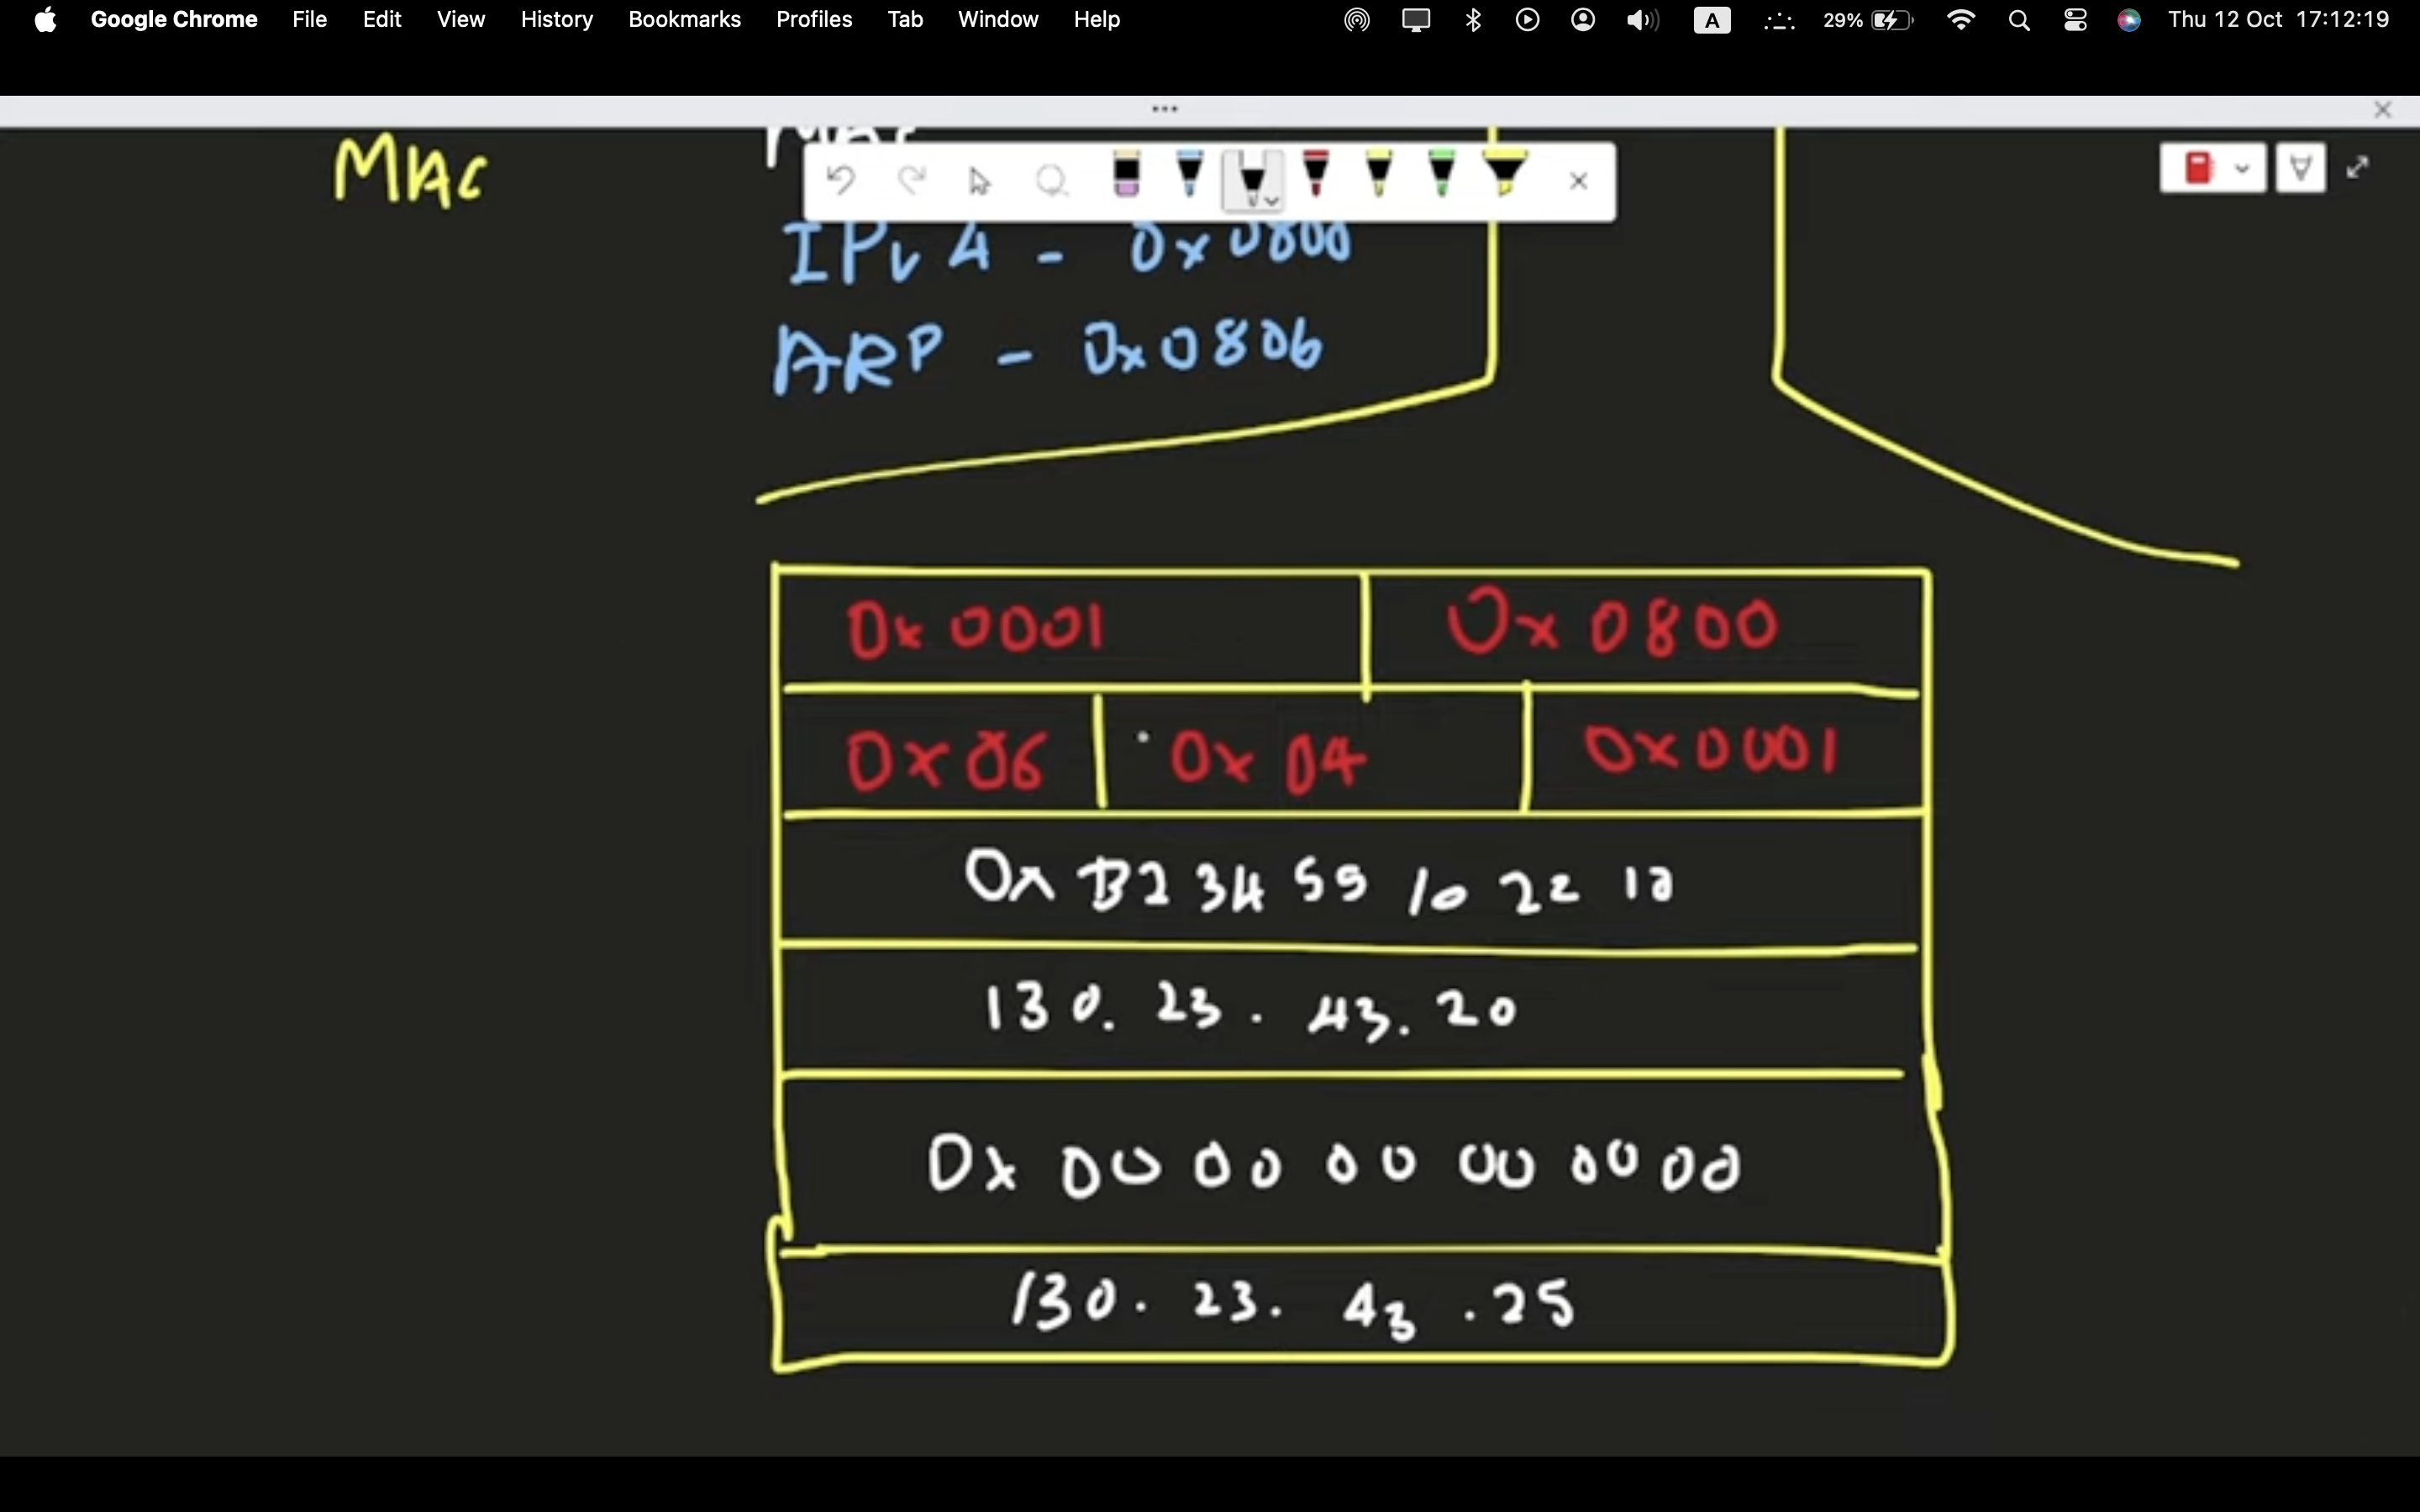 Google Chrome File Edit View History Bookmarks Profiles Tab Window Help A 29% Thu 12 Oct 17:12:19
MAC
IPv4 - 0x0800
ARP - 0x0806
0x0001 0x0800
0x06 0x04 0x0001
0x B2 34 55 10 22 10
130.23.43.20
0x 00 00 00 00 00 00
130.23.43.25